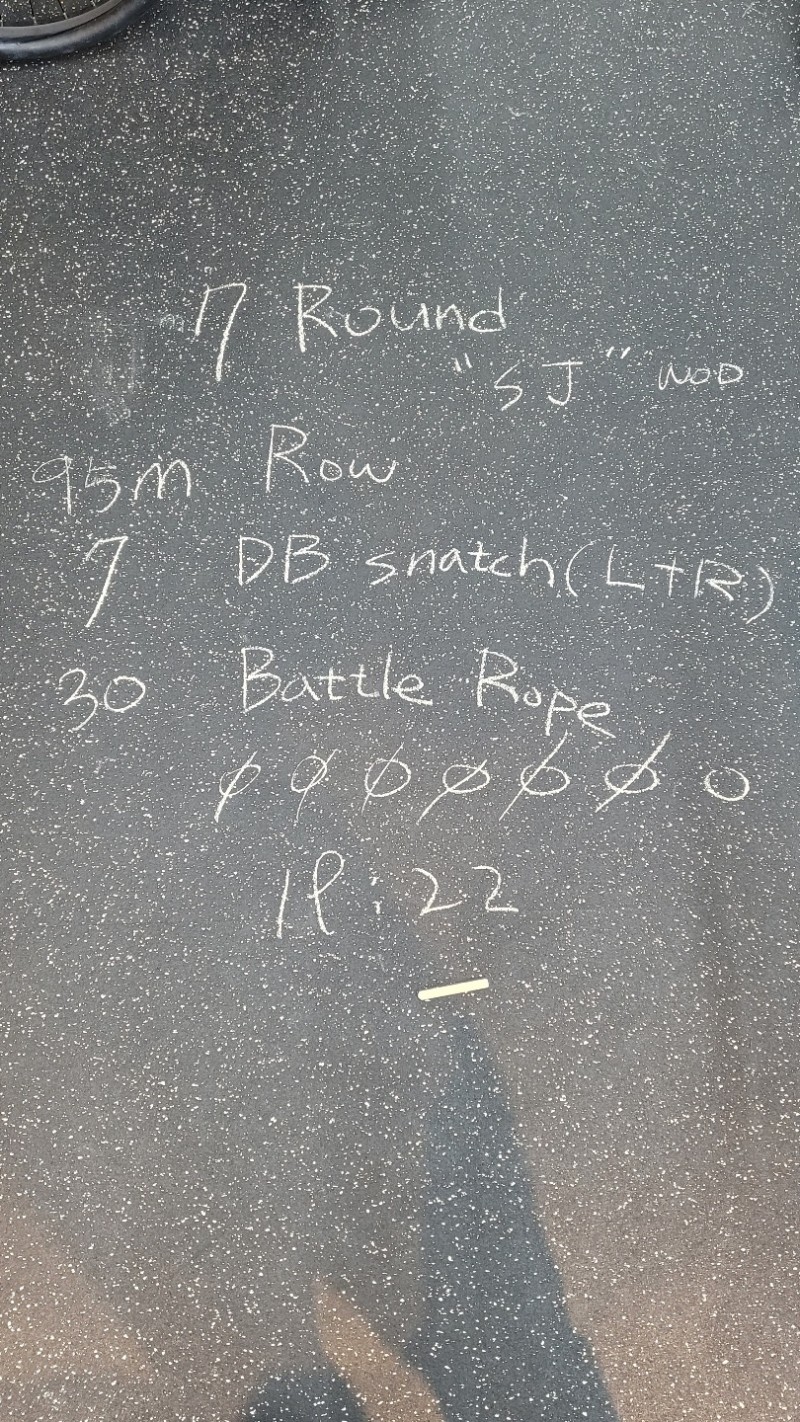 7 Round
"SJ" WOD
95m Row
7 DB snatch (L+R)
30 Battle Rope
Ø Ø Ø Ø Ø Ø O
:22